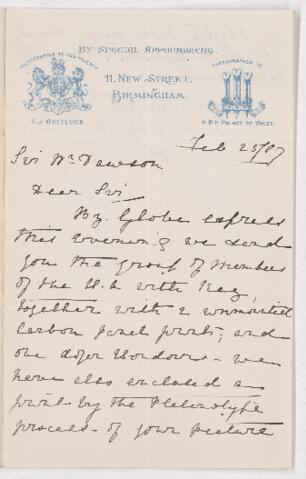 BY SPECIAL APPOINTMENT.
PHOTOGRAPHER TO HER MAJESTY
H.J. WHITLOCK.
11, NEW STREET,
BIRMINGHAM.
PHOTOGRAPHER TO
H.R.H. PRINCE OF WALES.
Feb 25/87
Sir Wm Dawson
Dear Sir
By Globe express
this evening we send
you the group of members
of the B.A. with Key,
together with 2 unmounted
Carbon panel prints, and
one
we
have also enclosed a
print by the Platinotype
process of your picture